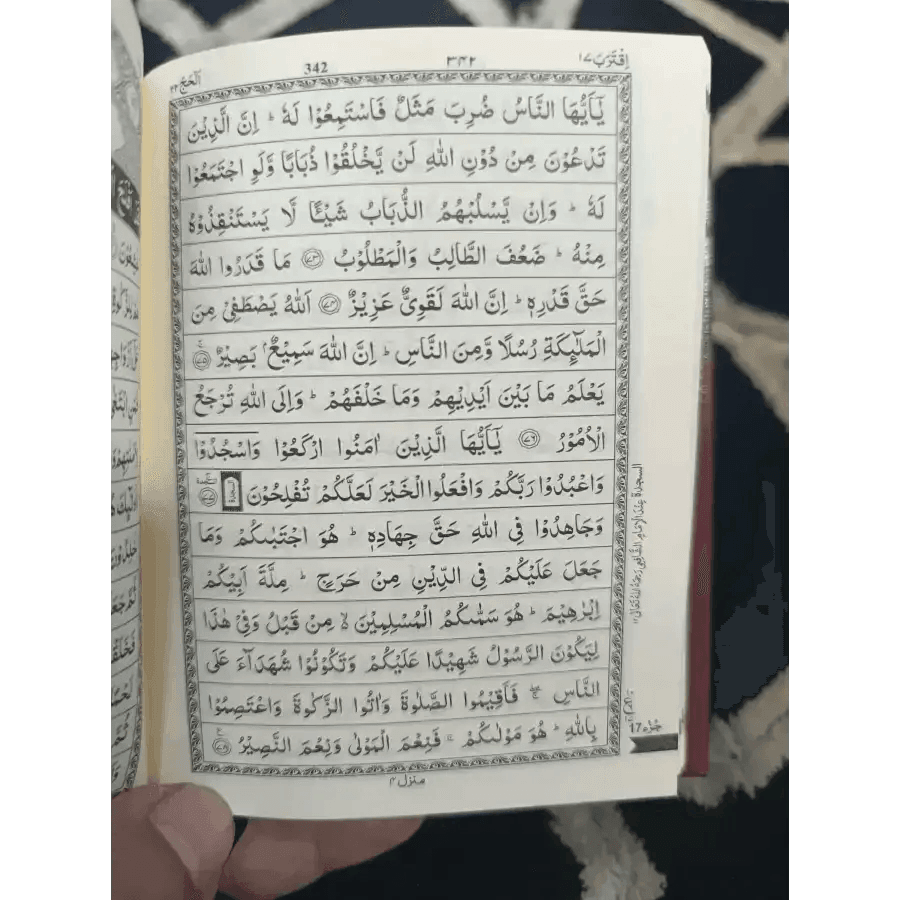 اِقْتَرَبَ ١٧
٣٤٢
342
اَلْحَجّ ٢٢
يٰۤاَيُّهَا النَّاسُ ضُرِبَ مَثَلٌ فَاسْتَمِعُوْا لَهٗ ؕ اِنَّ الَّذِيْنَ
تَدْعُوْنَ مِنْ دُوْنِ اللّٰهِ لَنْ يَّخْلُقُوْا ذُبَابًا وَّلَوِ اجْتَمَعُوْا
لَهٗ ؕ وَاِنْ يَّسْلُبْهُمُ الذُّبَابُ شَيْـًٔا لَّا يَسْتَنْقِذُوْهُ
مِنْهُ ؕ ضَعُفَ الطَّالِبُ وَالْمَطْلُوْبُ ﴿٧٣﴾ مَا قَدَرُوا اللّٰهَ
حَقَّ قَدْرِهٖ ؕ اِنَّ اللّٰهَ لَقَوِىٌّ عَزِيْزٌ ﴿٧٤﴾ اَللّٰهُ يَصْطَفِىْ مِنَ
الْمَلٰٓئِكَةِ رُسُلًا وَّمِنَ النَّاسِ ؕ اِنَّ اللّٰهَ سَمِيْعٌۢ بَصِيْرٌ ﴿٧٥﴾
يَعْلَمُ مَا بَيْنَ اَيْدِيْهِمْ وَمَا خَلْفَهُمْ ؕ وَاِلَى اللّٰهِ تُرْجَعُ
الْاُمُوْرُ ﴿٧٦﴾ يٰۤاَيُّهَا الَّذِيْنَ اٰمَنُوا ارْكَعُوْا وَاسْجُدُوْا
وَاعْبُدُوْا رَبَّكُمْ وَافْعَلُوا الْخَيْرَ لَعَلَّكُمْ تُفْلِحُوْنَ السجدة ﴿٧٧﴾
وَجَاهِدُوْا فِى اللّٰهِ حَقَّ جِهَادِهٖ ؕ هُوَ اجْتَبٰىكُمْ وَمَا
جَعَلَ عَلَيْكُمْ فِى الدِّيْنِ مِنْ حَرَجٍ ؕ مِلَّةَ اَبِيْكُمْ
اِبْرٰهِيْمَ ؕ هُوَ سَمّٰٮكُمُ الْمُسْلِمِيْنَ ۙ مِنْ قَبْلُ وَفِىْ هٰذَا
لِيَكُوْنَ الرَّسُوْلُ شَهِيْدًا عَلَيْكُمْ وَتَكُوْنُوْا شُهَدَآءَ عَلَى
النَّاسِ ۖۚ فَاَقِيْمُوا الصَّلٰوةَ وَاٰتُوا الزَّكٰوةَ وَاعْتَصِمُوْا
بِاللّٰهِ ؕ هُوَ مَوْلٰٮكُمْ ۚ فَنِعْمَ الْمَوْلٰى وَنِعْمَ النَّصِيْرُ ﴿٧٨﴾
السجدة عند الامام الشافعي رحمة الله تعالى
جُزْء 17
منزل ٤